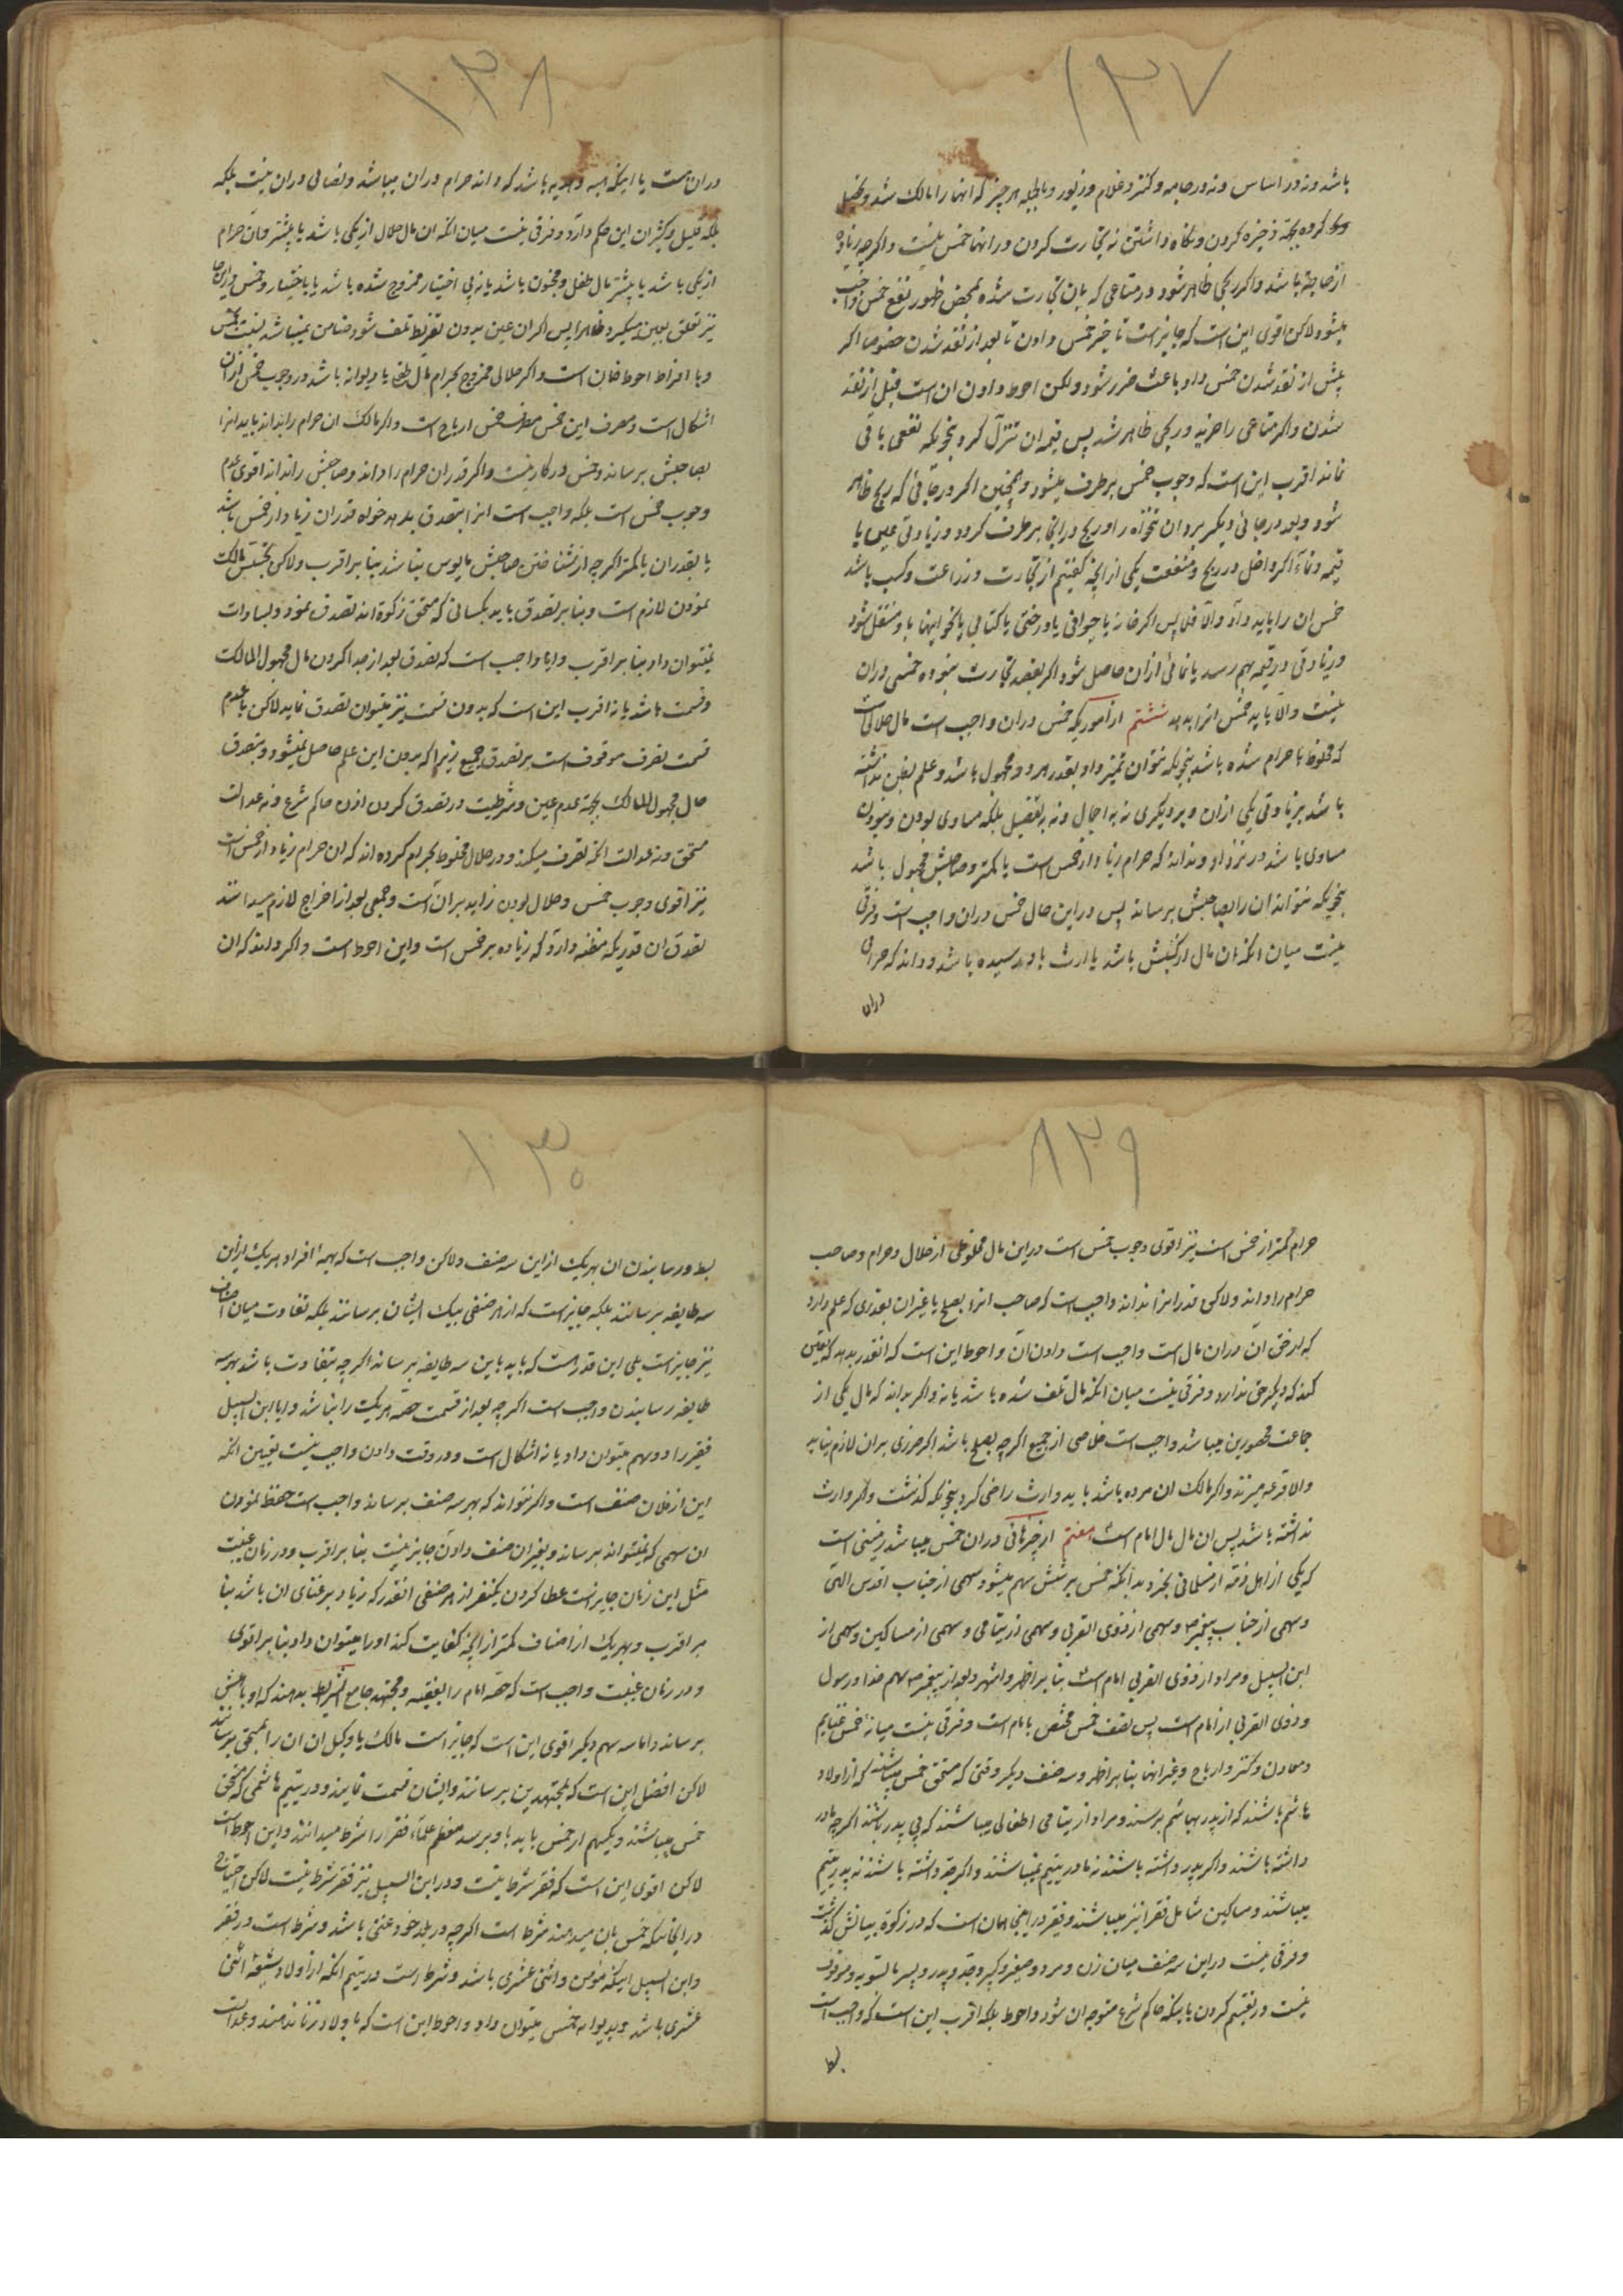 ۱۲۷
باشد و نه در اساس و نه در جامه و کنیز و غلام و زیور و بالجمله هر چیز که آنها را مالک شد و تحصیل
کرده بجهة ذخیره کردن و نگاه داشتن نه تجارت کردن در آنها خمس نیست و اگرچه زیاده
از حاجة باشد و اگر ربحی ظاهر شود در متاعی که بان تجارت شده بمحض ظهور نفع خمس واجب
میشود لاکن اقوی این است که جایز است تاخیر خمس دادن تا بعد از نقد شدن خصوصا اگر
پیش از نقد شدن خمس دادن باعث ضرر شود ولکن احوط دادن ان است قبل از نقد
شدن و اگر متاعی را خرید و ربحی ظاهر شد پس قیمه ان تنزل کرد بنحویکه نفعی باقی
نماند اقرب این است که وجوب خمس برطرف میشود و همچنین اگر در جائی که ربح ظاهر
شود و بعد در جائی دیگر برد ان تنخواه را و ربح در آنجا برطرف گردد و زیادتی عین یا
قیمه و نماء اگر داخل در ربح و منفعت یکی از آنچه گفتیم از تجارت و زراعت و کسب باشد
خمس ان را باید داد و الا فلا پس اگر خانه یا حیوانی یا درختی یا کتابی یا نحو اینها باو منتقل شود
و زیادتی در قیمه بهم رسد یا نمائی از ان حاصل شود اگر بقصد تجارت نبوده خمسی در ان
نیست و الا باید خمس انرا بدهد ششم از اموریکه خمس در ان واجب است مال حلالی است
که مخلوط با حرام شده باشد بنحویکه نتوان تمیز داد و بقدر هر دو مجهول باشد و علم بظن نداشته
باشد بزیادتی یکی از ان دو بر دیگری نه به اجمال و نه به تفصیل بلکه مساوی بودن و نبودن
مساوی باشد در نزد او و نداند که حرام زیاد از خمس است یا کمتر و صاحبش مجهول باشد
بنحویکه نتواند ان را بصاحبش برساند پس در این حال خمس در ان واجب است و فرقی
نیست میان انکه ان مال از کسبش باشد یا ارث باو رسیده باشد و داند که حرامی
دران
۱۲۸
دران است یا اینکه هبه و هدیه باشد که داند حرام در ان میباشد و نصابی در ان نیست بلکه
بلکه قلیل و کثیر ان این حکم دارد و فرقی نیست میان انکه ان مال حلال از یکی باشد یا بیشتر و ان حرام
از یکی باشد یا بیشتر مال طفل و مجنون باشد یا نه بی اختیار ممزوج شده باشد یا باختیار و خمس در این
نیز تعلق بعین میگیرد ظاهرا پس اگر ان عین بدون تفریط تلف شود ضامن نمیباشد
و با افراط احوط ضمان است و اگر حلالی ممزوج بحرام مال طفل یا دیوانه باشد در وجوب خمس از ان
اشکال است و مصرف این خمس مصرف خمس ارباح است و اگر مالک ان حرام را بداند باید انرا
بصاحبش برساند و خمس در کار نیست و اگر قدر ان حرام را داند و صاحبش را نداند اقوی عدم
وجوب خمس است بلکه واجب است انرا بتصدق بدهد خواه قدر ان زیاد از خمس باشد
یا بقدر ان یا کمتر اگرچه از شناختن صاحبش مایوس نباشد بنا بر اقرب ولاکن تجسس مالک
نمودن لازم است و بنا بر تصدق باید بکسانی که مستحق زکوة اند تصدق نمود و بسادات
نمیتوان داد بنا بر اقرب و ایا واجب است که تصدق بعد از جدا کردن مال مجهول المالک
و قسمت باشد یا نه اقرب این است که بدون قسمت نیز میتوان تصدق نماید لاکن با عدم
قسمت تصرف موقوف است بر تصدق جمیع زیرا که بدون این علم حاصل نمیشود و بتصدق
مال مجهول المالک بجهة عدم عین و شرطیت در تصدق کردن اذن حاکم شرع و نه عدالت
مستحق و نه عدالت انکه تصرف میکند و در حلال مخلوط بحرام کرده اند که ان حرام زیاد از خمس است
نیز اقوی وجوب خمس و حلال بودن زاید بر ان است و جمعی بعد از اخراج لازم میدانند
تصدق ان قدریکه مظنه دارد که زیاده بر خمس است و این احوط است و اگر داند که ان
۱۲۹
حرام کمتر از خمس است نیز اقوی وجوب خمس است در این مال مخلوطی از حلال و حرام و صاحب
حرام را داند ولاکن قدر انرا نداند واجب است که صاحب انرا بصلح یا غیر ان بقدری که علم دارد
که او حق ان در ان مال است واجب است دادن ان و احوط این است که انقدر بدهد که یقین
کند که دیگر حق ندارد و فرقی نیست میان انکه مال تلف شده باشد یا نه و اگر بداند که مال یکی از
جماعت محصورین میباشد واجب است خلاصی از جمیع اگرچه بصلح باشد اگر ضرری بر ان لازم نیاید
والا قرعه میزند و اگر مالک ان مرده باشد باید وارث راضی کرد بنحویکه گذشت و اگر وارث
نداشته باشد پس ان مال مال امام است هفتم از چیزهائی که در ان خمس میباشد زمینی است
که یکی از اهل ذمه از مسلمانی بخرد بدانکه خمس بر شش سهم میشود سهمی از جناب اقدس الهی
و سهمی از جناب پیغمبر و سهمی از ذوی القربی و سهمی از یتامی و سهمی از مساکین و سهمی از
ابن السبیل و مراد از ذوی القربی امام است بنا بر اظهر و اشهر و بعد از پیغمبر سهم خدا و رسول
و ذوی القربی از امام است پس نصف خمس مختص بامام است و فرقی نیست میانه خمس غنایم
و معادن و کنز و ارباح و غیر انها بنا بر اظهر و سه صنف دیگر وقتی که مستحق خمس میباشند که از اولاد
هاشم باشند که از پدر بهاشم برسند و مراد از یتامی اطفالی میباشند که بی پدر باشند اگرچه مادر
داشته باشند و اگر پدر داشته باشند نه مادر یتیم نمیباشند و اگر جد داشته باشند نه پدر یتیم
میباشند و مساکین شامل فقرا نیز میباشند و فقیر در اینجا همان است که در زکوة بیانش گذشت
و فرقی نیست در این سه صنف میان زن و مرد و صغیر و کبیر و جد و پدر و پسر بالتسویه و
نیست در تقسیم کردن یا اینکه حاکم شرع متوجه ان شود و احوط بلکه اقرب این است که واجب است
بسط
۱۳۰
بسط و رسانیدن ان بهر یک از این سه صنف ولاکن واجب است که بهمه افراد هر یک از این
سه طایفه برسانند بلکه جایز است که از هر صنفی بیک ایشان برسانند بلکه تفاوت میان اصناف
نیز جایز است بلی این قدر هست که باید باین سه طایفه برساند اگرچه بتفاوت باشد بهر سه
طایفه رسانیدن واجب است اگرچه بعد از قسمت حصه هر یک را نباشد و ایا ابن السبیل
فقیر را دو سهم میتوان داد یا نه اشکال است و در وقت دادن واجب نیست تعیین انکه
این از فلان صنف است و اگر نتواند که بهر سه صنف برساند واجب است حفظ نمودن
ان سهمی که نمیتواند برساند و بغیر ان صنف دادن جایز نیست بنا بر اقرب و در زمان غیبت
مثل این زمان جایز است عطا کردن یکنفر از هر صنفی انقدر که زیاد بر غنای ان باشد بنا
بر اقرب و بهر یک از اصناف کمتر از آنچه کفایت کند او را میتوان داد بنا بر اقوی
و در زمان غیبت واجب است که حصه امام را بفقیه و مجتهد جامع الشرایط بدهند که او باهلش
برساند و اما سه سهم دیگر اقوی این است که جایز است مالک یا وکیل ان ان را بمستحق برسانند
لاکن افضل این است که بمجتهدین برسانند و ایشان قسمت نمایند و در یتیم هاشمی که مستحق
خمس میباشند و یکسهم از خمس باید باو برسد معظم علماء فقر را شرط میدانند و این احوط است
لاکن اقوی این است که فقر شرط نیست و در ابن السبیل نیز فقر شرط نیست لاکن احتیاج
در آنجائیکه خمس بان میدهند شرط است اگرچه در بلد خود غنی باشد و شرط است در فقیر
و ابن السبیل اینکه مؤمن و اثنی عشری باشد و شرط است در یتیم انکه از اولاد شیعه اثنی
عشری باشد و بدیوانه خمس میتوان داد و احوط این است که باولاد زنا ندهند و عدالت